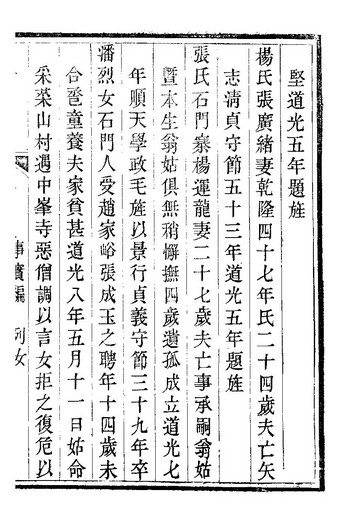 堅道光五年題旌
楊氏張廣緒妻乾隆四十七年氏二十四歲夫亡矢
志清貞守節五十三年道光五年題旌
張氏石門寨楊運龍妻二十七歲夫亡事承嗣翁姑
曁本生翁姑俱無稍懈撫四歲遺孤成立道光七
年順天學政毛旌以景行貞義守節三十九年卒
潘烈女石門人受趙家峪張成玉之聘年十四歲未
合卺童養夫家貧甚道光八年五月十一日姑命
采菜山村遇中峯寺惡僧調以言女拒之復危以
事實編 列女